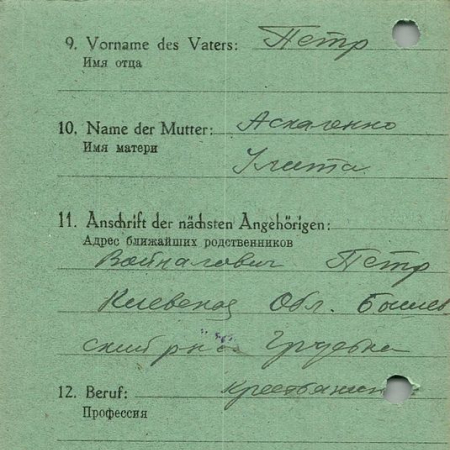 9. Vorname des Vaters: Петр
Имя отца
10. Name der Mutter:
Имя матери
11. Anschrift der nächsten Angehörigen:
Адрес ближайших родственников
Войналович Петр
Киевская Обл. Бышев
ский р-н
12. Beruf: Крестьянин
Профессия